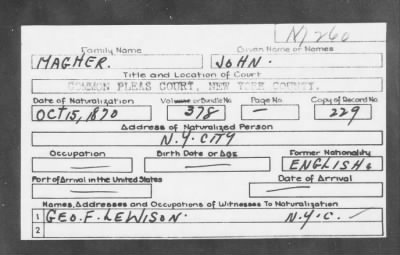 M260
Family Name Given Name or Names
MAGHER. JOHN.
Title and Location of Court
COMMON PLEAS COURT, NEW YORK COUNTY.
Date of Naturalization Volume or Bundle No Page No Copy of Record No
OCT 15, 1870 378 — 229
Address of Naturalized Person
N.Y. CITY
Occupation Birth Date or Age Former Nationality
ENGLISH.
Port of Arrival in the United States Date of Arrival
Names, Addresses and Occupations of Witnesses To Naturalization
1 GEO. F. LEWISON. N.Y.C.
2